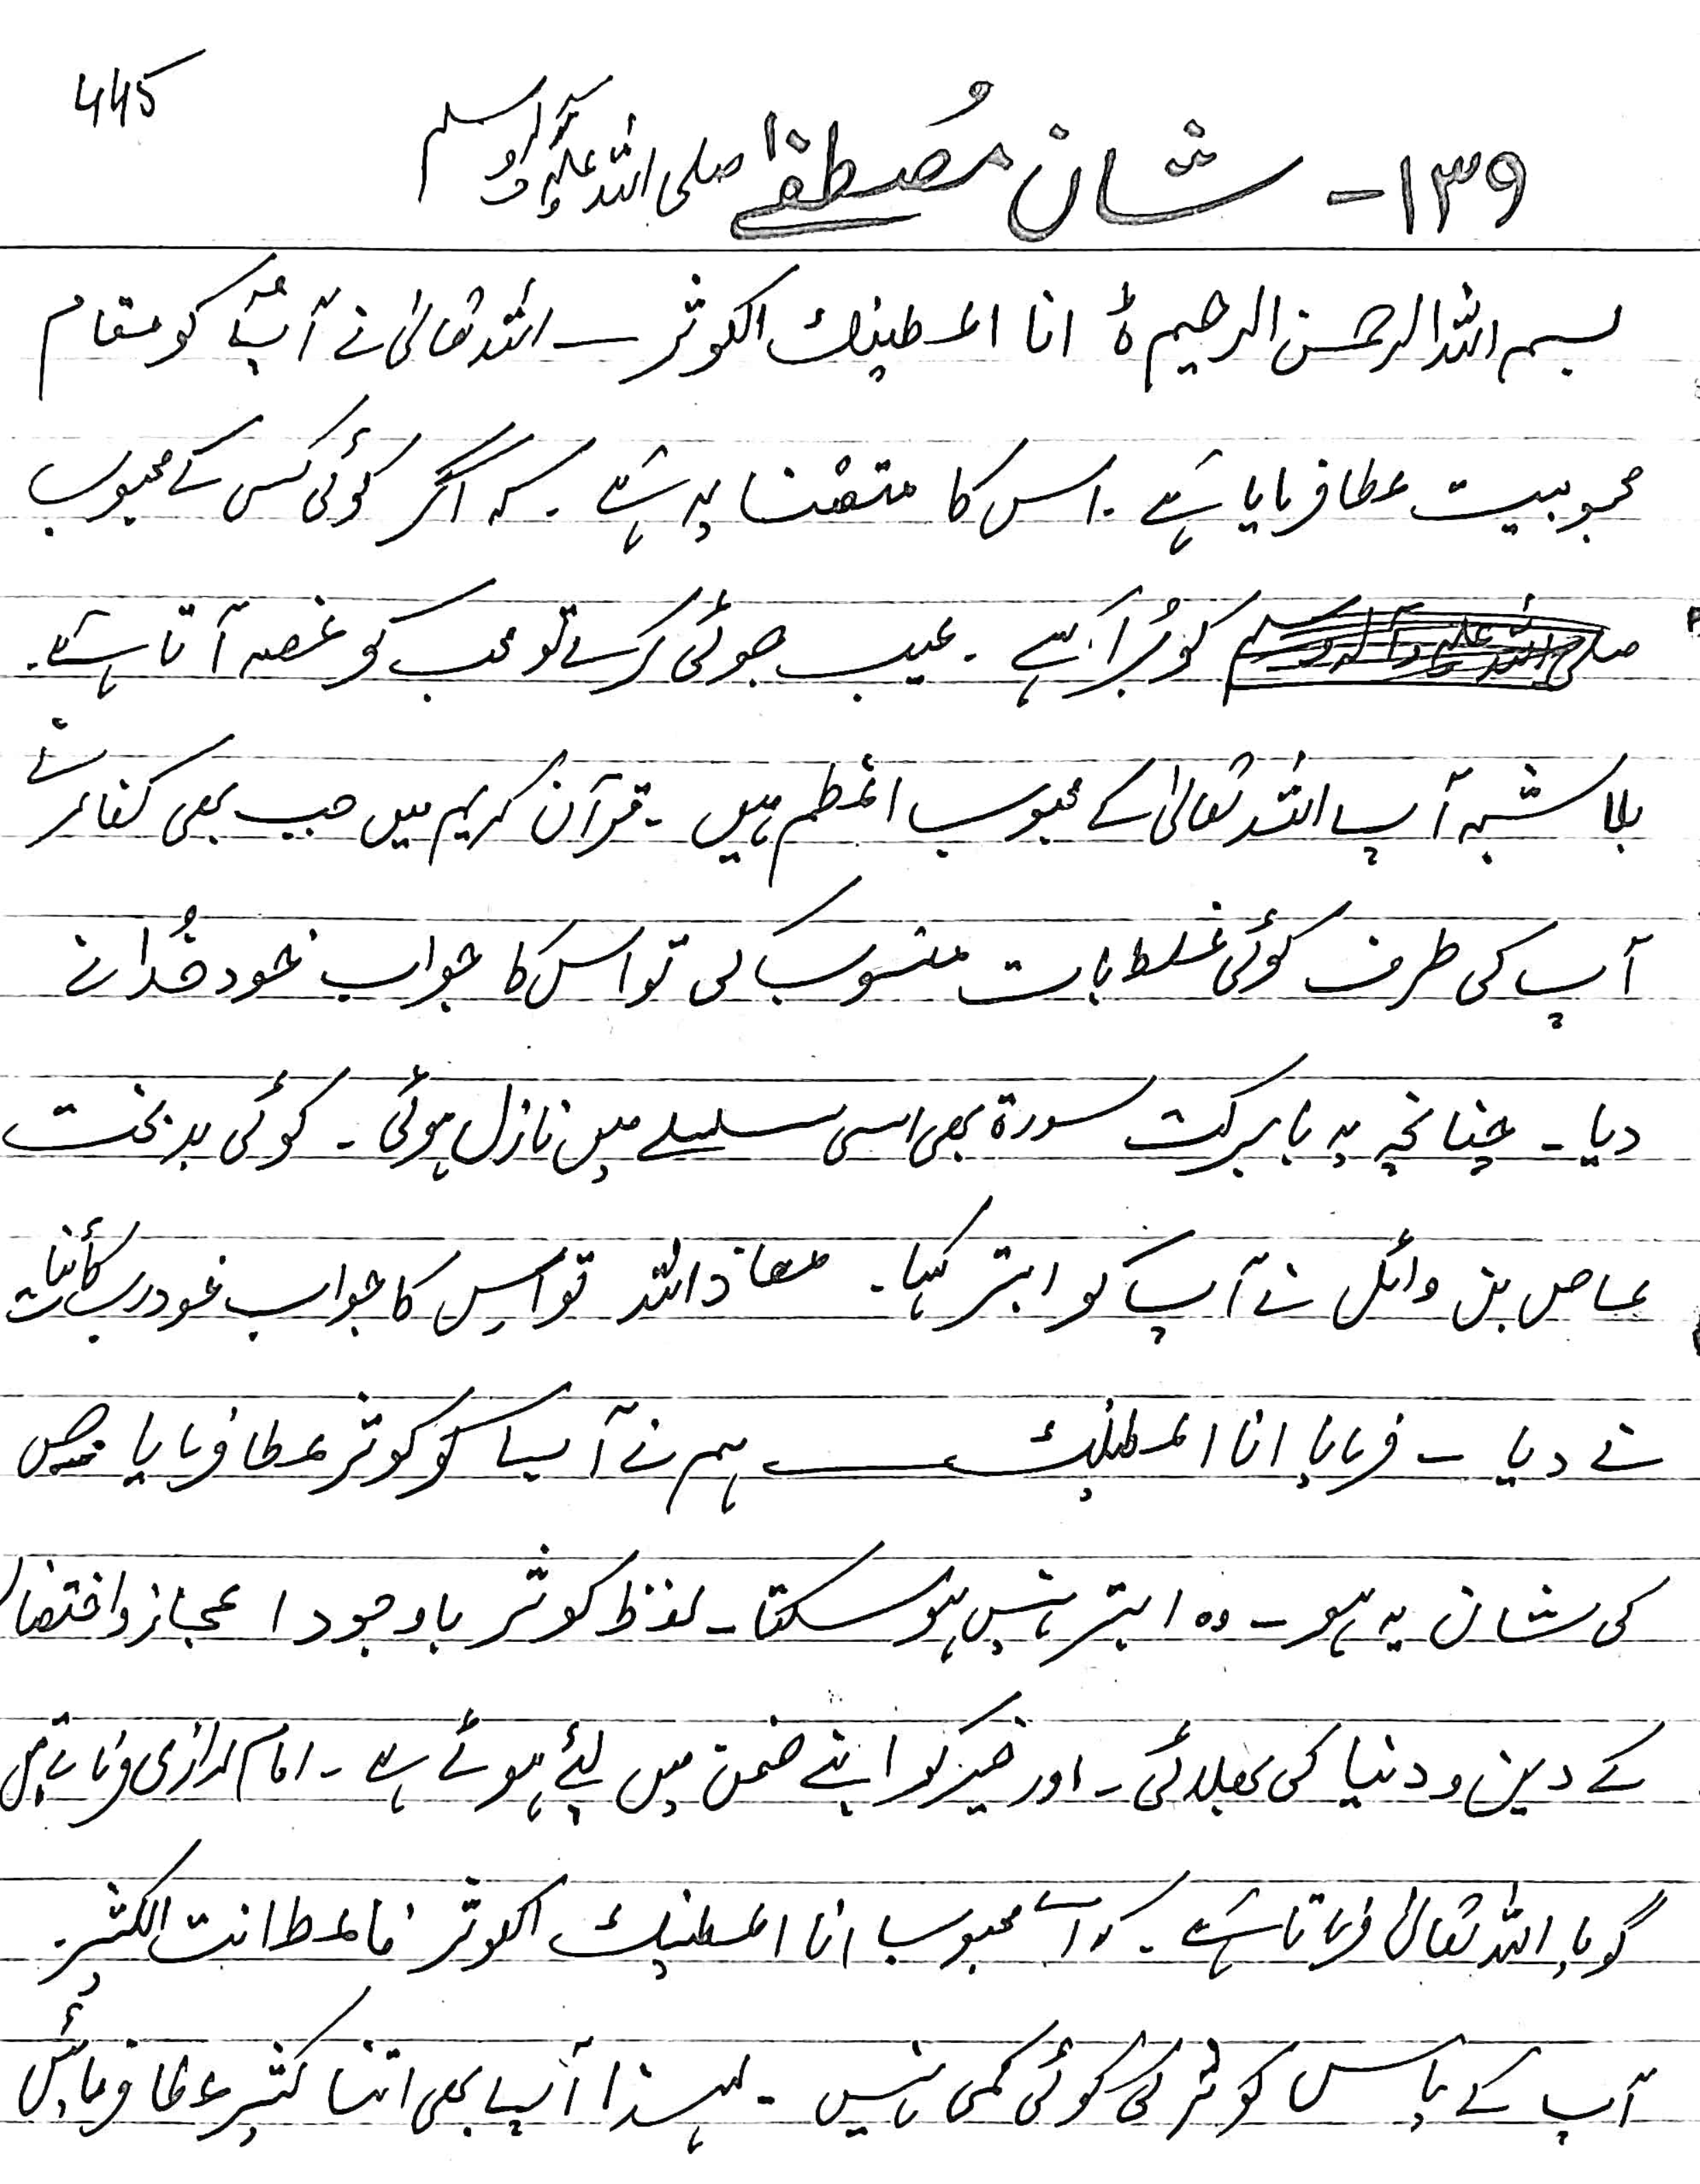 445
۱۳۹- شان مُصطفےٰ صلی اللہ علیہ وآلہ وسلم
بسم اللہ الرحمن الرحیم ہ انا اعطینٰک الکوثر ـ اللہ تعالیٰ نے آپؐ کو مقام
محبوبیت عطا فرمایا ہے ۔ اس کا متقضا یہ ہے ۔ کہ اگر کوئی کسی کے محبوب
کو بُرا کہے ۔ عیب جوئی کرے تو محب کو غصہ آتا ہے۔
بلا شبہ آپ اللہ تعالیٰ کے محبوب اعظم ہیں ۔ قرآن کریم میں جب بھی کفار نے
آپ کی طرف کوئی غلط بات منسوب کی تو اس کا جواب خود خُدا نے
دیا ۔ چنانچہ یہ بابرکت سورۃ بھی اسی سلسلے میں نازل ہوئی ۔ کوئی بدبخت
عاص بن وائل نے آپ کو ابتر کہا ۔ معاذ اللہ تو اس کا جواب خود رب کائنات
نے دیا ۔ فرمایا انا اعطینٰک ـــ ہم نے آپ کو کوثر عطا فرمایا جس
کی شان یہ ہو ۔ وہ ابتر نہیں ہو سکتا ۔ لفظ کوثر باوجود اعجاز و اختصار
کے دین و دنیا کی بھلائی ۔ اور خیر کو اپنے ضمن میں لئے ہوئے ہے ۔ امام رازی فرماتے ہیں
گویا اللہ تعالیٰ فرماتا ہے ۔ کہ اے محبوب انا اعطینٰک الکوثر فاعط انت الکثیر۔
آپ کے پاس کوثر کی کوئی کمی نہیں ۔ لہذا آپ بھی اتنا کثیر عطا فرمائیں